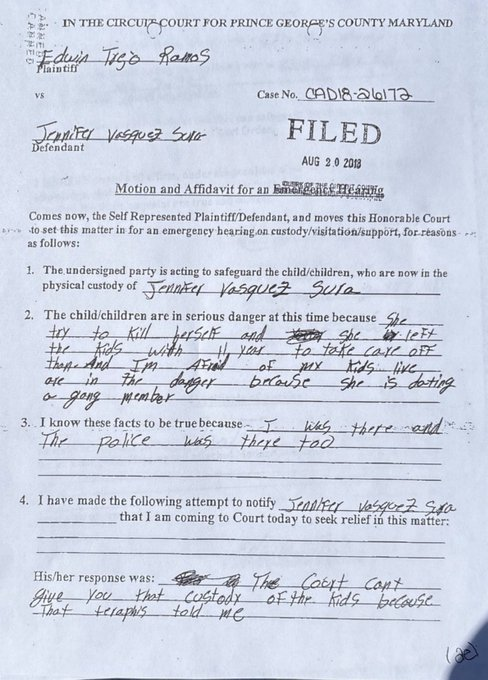 SCANNED
IN THE CIRCUIT COURT FOR PRINCE GEORGE'S COUNTY MARYLAND
Edwin Trejo Ramos
Plaintiff
vs
Case No. CAD18-26172
Jennifer Vasquez Sura
Defendant
FILED
AUG 20 2018
Motion and Affidavit for an Emergency Hearing
Comes now, the Self Represented Plaintiff/Defendant, and moves this Honorable Court
to set this matter in for an emergency hearing on custody/visitation/support, for reasons
as follows:
1. The undersigned party is acting to safeguard the child/children, who are now in the
physical custody of Jennifer Vasquez Sura
2. The child/children are in serious danger at this time because She
try to kill herself and she left
the kids with 11 year to take care off
them. And I'm Afraid of my kids live
are in the danger because she is dating
a gang member
3. I know these facts to be true because I was there and
The police was there too
4. I have made the following attempt to notify Jennifer Vasquez Sura
that I am coming to Court today to seek relief in this matter:
His/her response was: The Court cant
give you that custody of the kids because
that teraphis told me